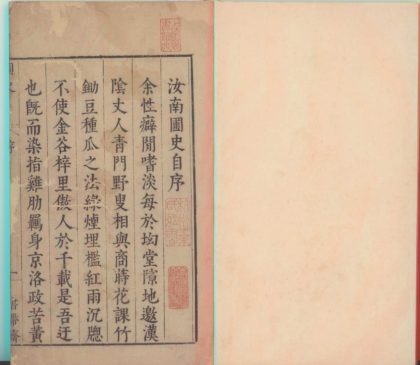 汝南圃史自序
余性癖閒嗜淡每於坳堂隙地邀漢
陰丈人青門野叟相與商蒔花課竹
鋤豆種瓜之法綠煙埋檻紅雨沉牕
不使金谷梓里傲人於千載是吾迂
也旣而染指雞肋羈身京洛政苦黃
序
一